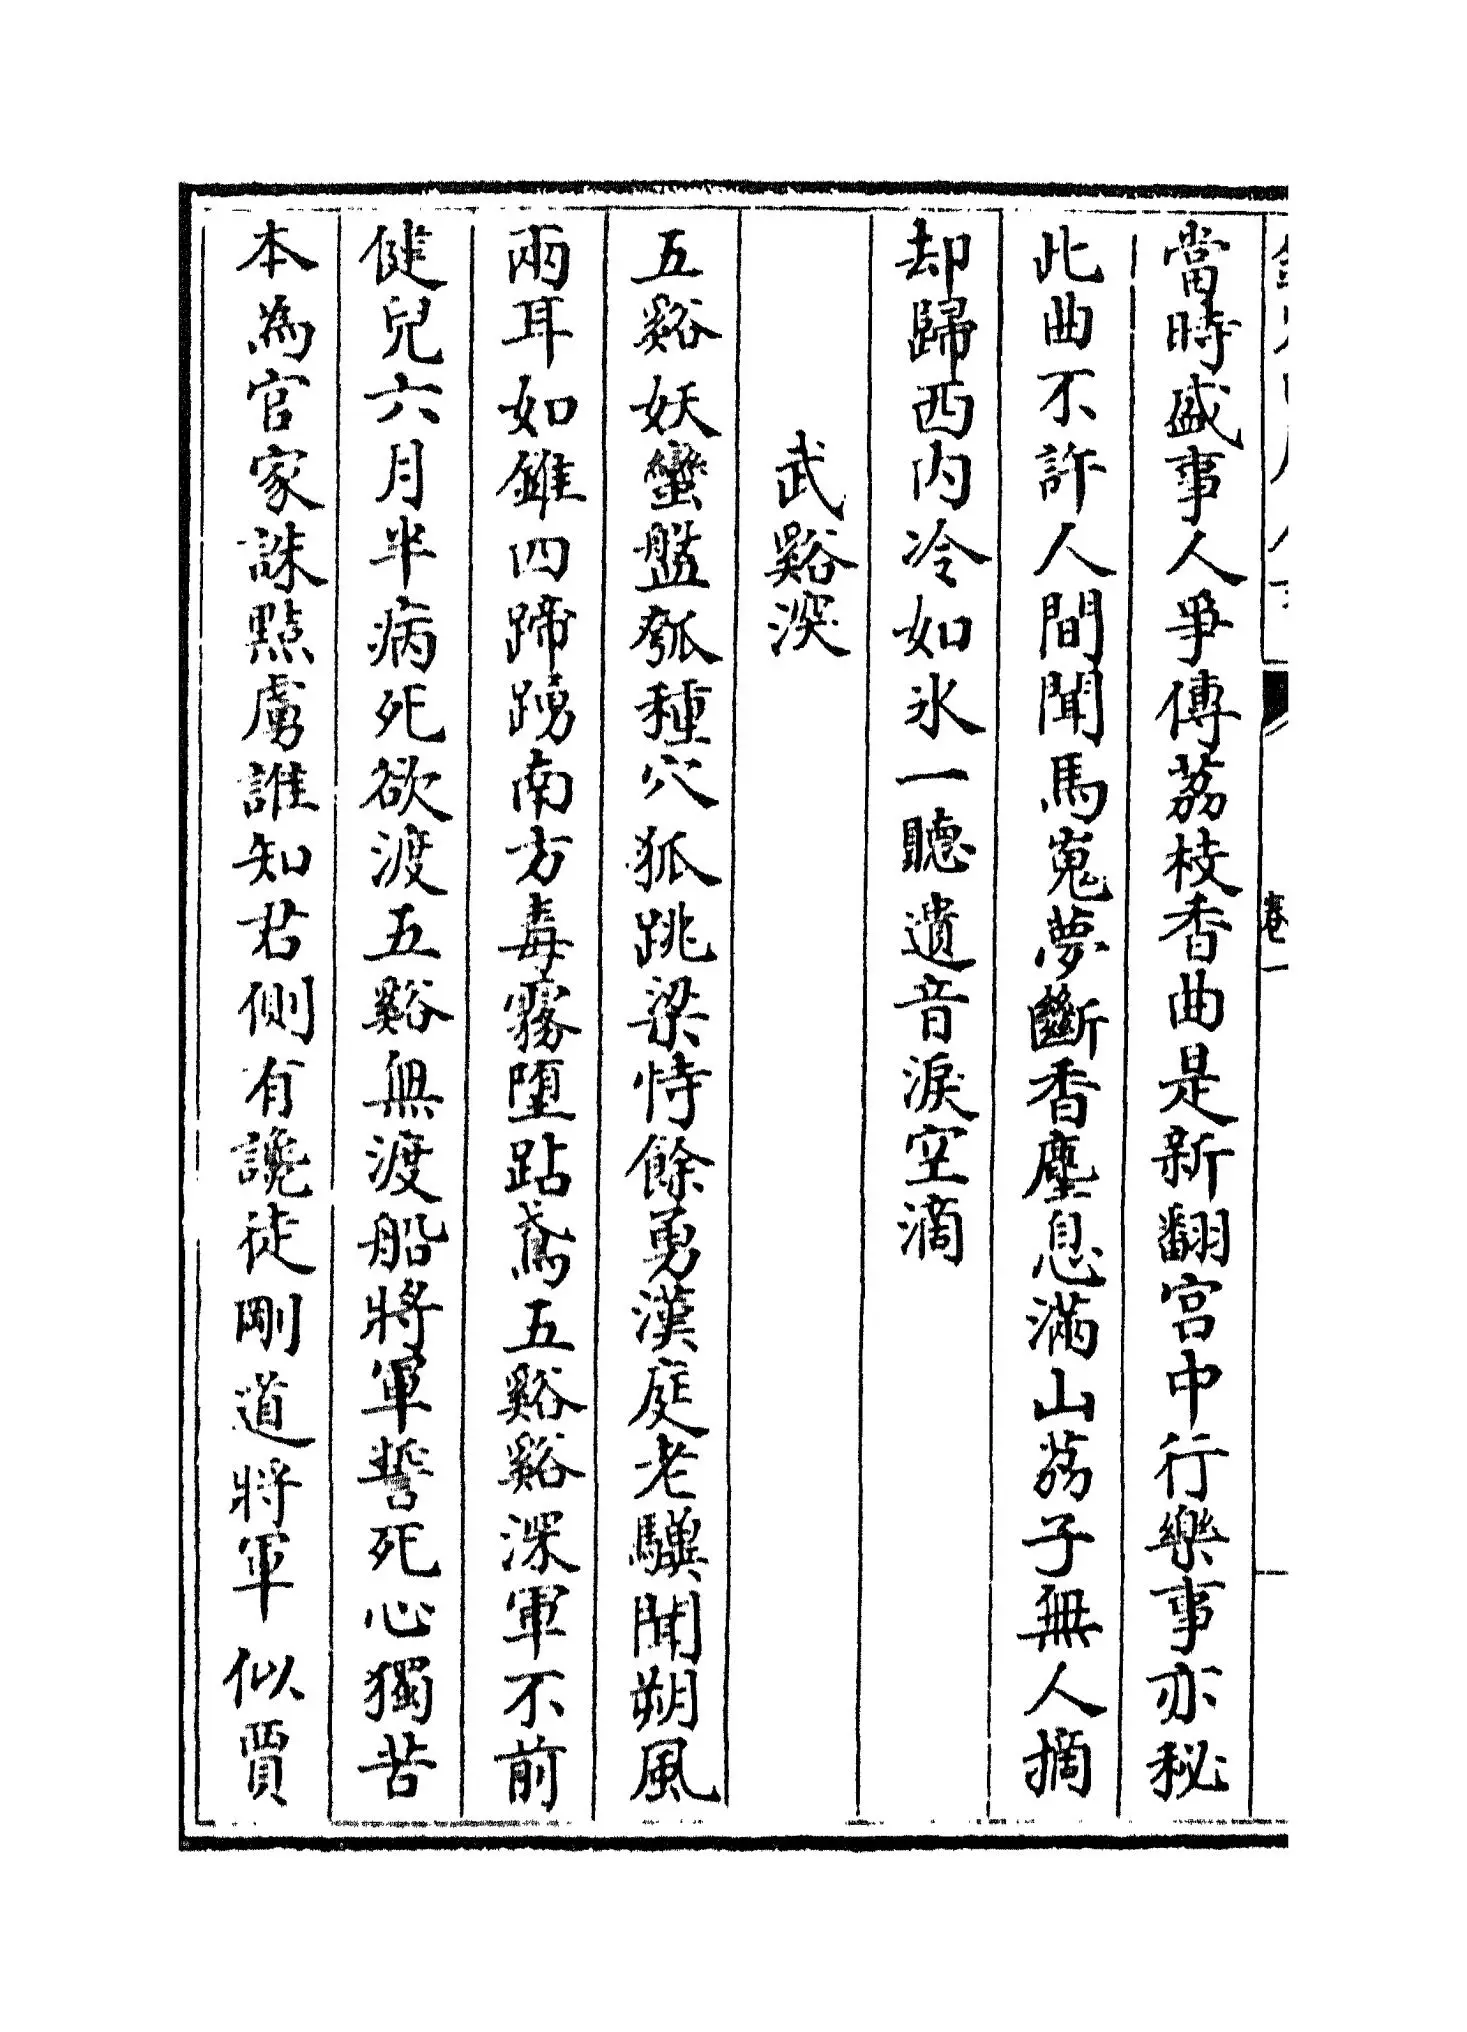 當時盛事人爭傳荔枝香曲是新翻宫中行樂事亦秘
此曲不許人間聞馬嵬夢斷香塵息滿山荔子無人摘
却歸西内冷如氷一聽遺音淚空滴
武谿深
五谿妖蠻盤瓠種穴狐跳梁恃餘勇漢庭老驥聞朔風
兩耳如錐四蹄踴南方毒霧墮跕鳶五谿谿深軍不前
健兒六月半病死欲渡五谿無渡船將軍誓死心獨苦
本為官家誅㸃虜誰知君側有讒徒剛道將軍似賈
卷一